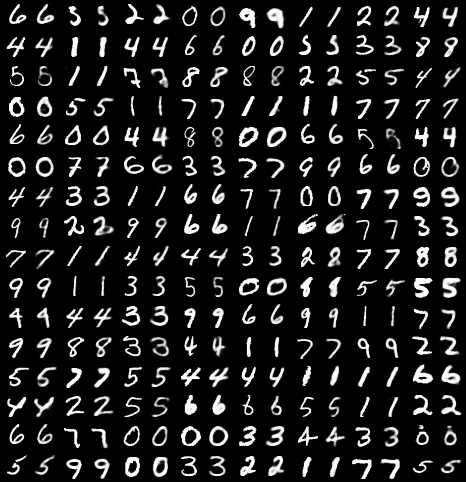 6 6 5 5 2 2 0 0 9 9 1 1 2 2 4 4
4 4 1 1 4 4 6 6 0 0 5 5 3 3 8 8
5 5 1 1 7 7 8 8 8 8 2 2 5 5 4 4
0 0 5 5 1 1 7 7 1 1 1 1 7 7 7 7
6 6 0 0 4 4 8 8 0 0 6 6 5 5 4 4
0 0 7 7 6 6 3 3 7 7 9 9 6 6 0 0
4 4 3 3 1 1 6 6 7 7 0 0 7 7 9 9
9 9 2 2 9 9 6 6 1 1 6 6 7 7 3 3
7 7 1 1 4 4 4 4 3 3 2 8 7 7 8 8
9 9 1 1 3 3 5 5 0 0 8 8 5 5 5 5
9 9 4 4 3 3 9 9 6 6 9 9 1 1 7 7
9 9 8 8 3 3 4 4 1 1 7 7 9 9 2 2
5 5 7 7 5 5 4 4 4 4 1 1 1 1 6 6
4 4 2 2 5 5 6 6 6 6 5 5 1 1 2 2
6 6 7 7 0 0 0 0 3 3 4 4 3 3 0 0
5 5 9 9 0 0 3 3 2 2 1 1 7 7 5 5